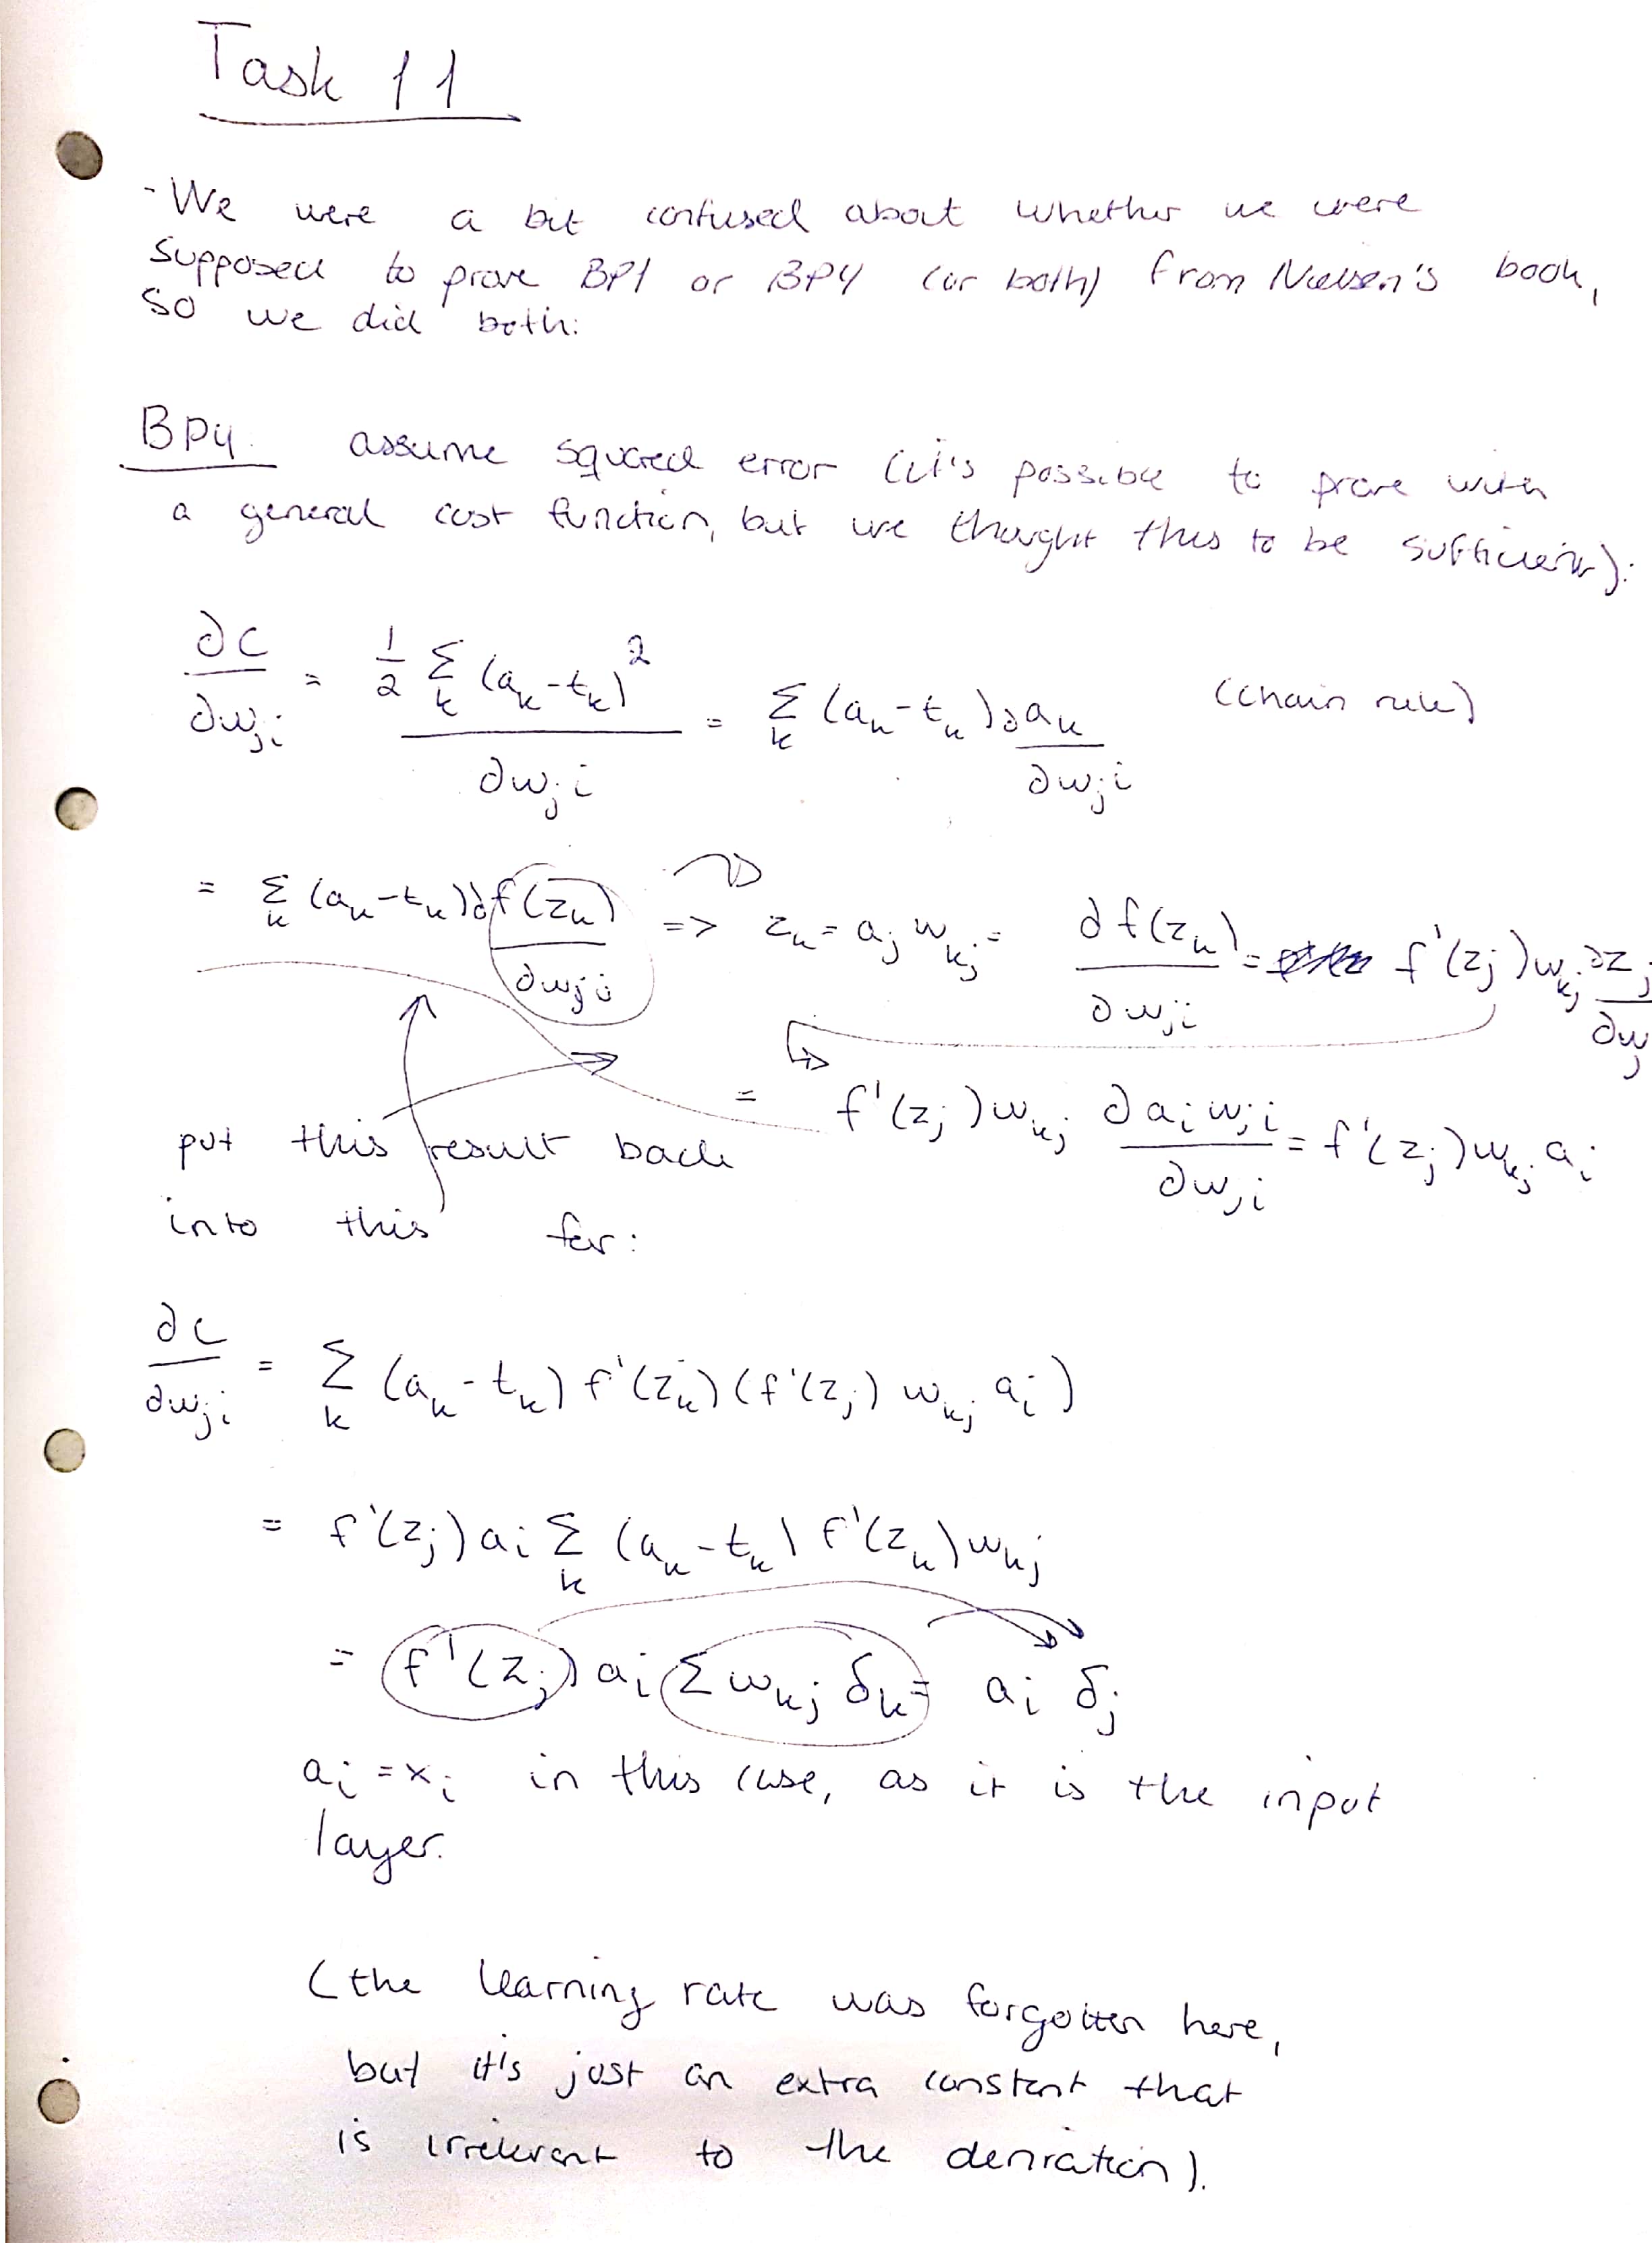 Task 11
- We were a bit confused about whether we were
supposed to prove BP1 or BP4 (or both) from Nielsen's book,
so we did both:
BP4. assume squared error (it's possible to prove with
a general cost function, but we thought this to be sufficient):
∂C/∂w_ji = ½ Σ_k (a_k - t_k)² / ∂w_ji = Σ_k (a_k - t_k) ∂a_k/∂w_ji (chain rule)
= Σ_k (a_k - t_k) ∂f(z_k)/∂w_ji => z_k = a_j w_kj = ∂f(z_k)/∂w_ji = f'(z_j) w_kj ∂z_j/∂w_j
= f'(z_j) w_kj ∂a_i w_ji/∂w_ji = f'(z_j) w_kj a_i
put this result back
into this for:
∂C/∂w_ji = Σ_k (a_k - t_k) f'(z_k) (f'(z_j) w_kj a_i)
= f'(z_j) a_i Σ_k (a_k - t_k) f'(z_k) w_kj
= f'(z_j) a_i Σ w_kj δ_k = a_i δ_j
a_i = x_i in this case, as it is the input
layer.
(the learning rate was forgotten here,
but it's just an extra constant that
is irrelevant to the derivation).